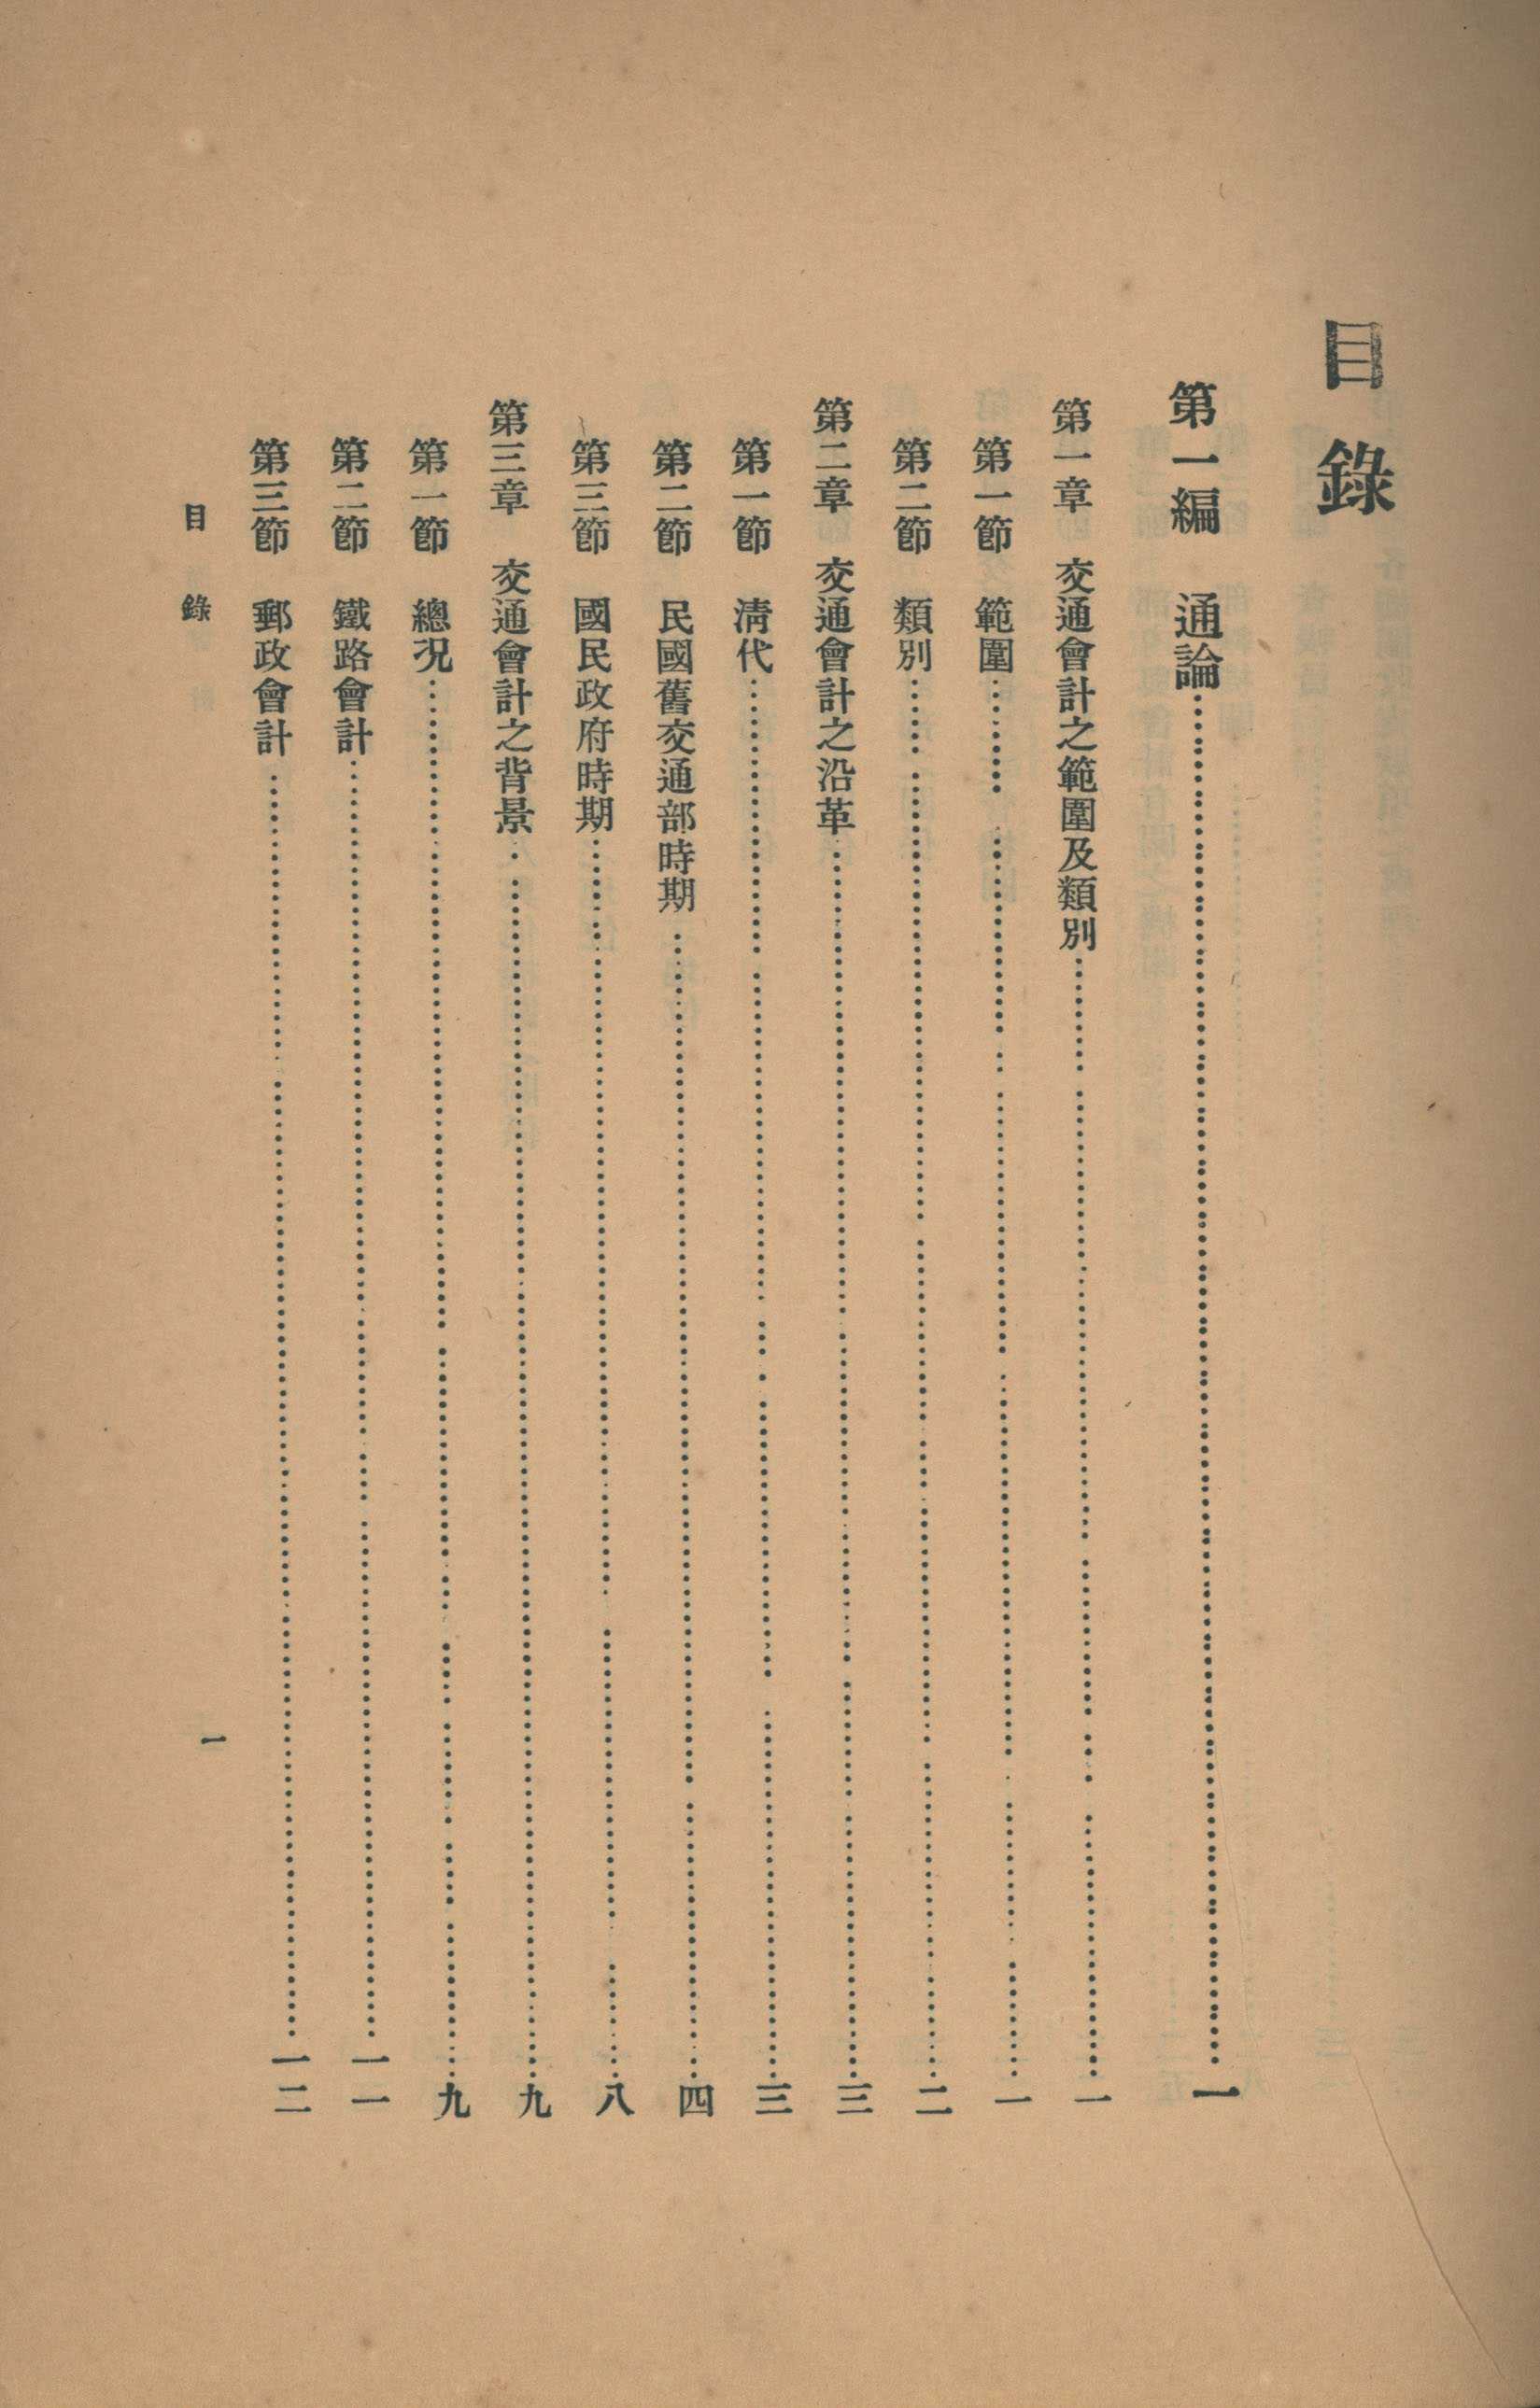 目錄
第一編　通論……一
第一章　交通會計之範圍及類別……一
第一節　範圍……一
第二節　類別……二
第二章　交通會計之沿革……三
第一節　清代……三
第二節　民國舊交通部時期……四
第三節　國民政府時期……八
第三章　交通會計之背景……九
第一節　總況……九
第二節　鐵路會計……一一
第三節　郵政會計……一二
目錄
一